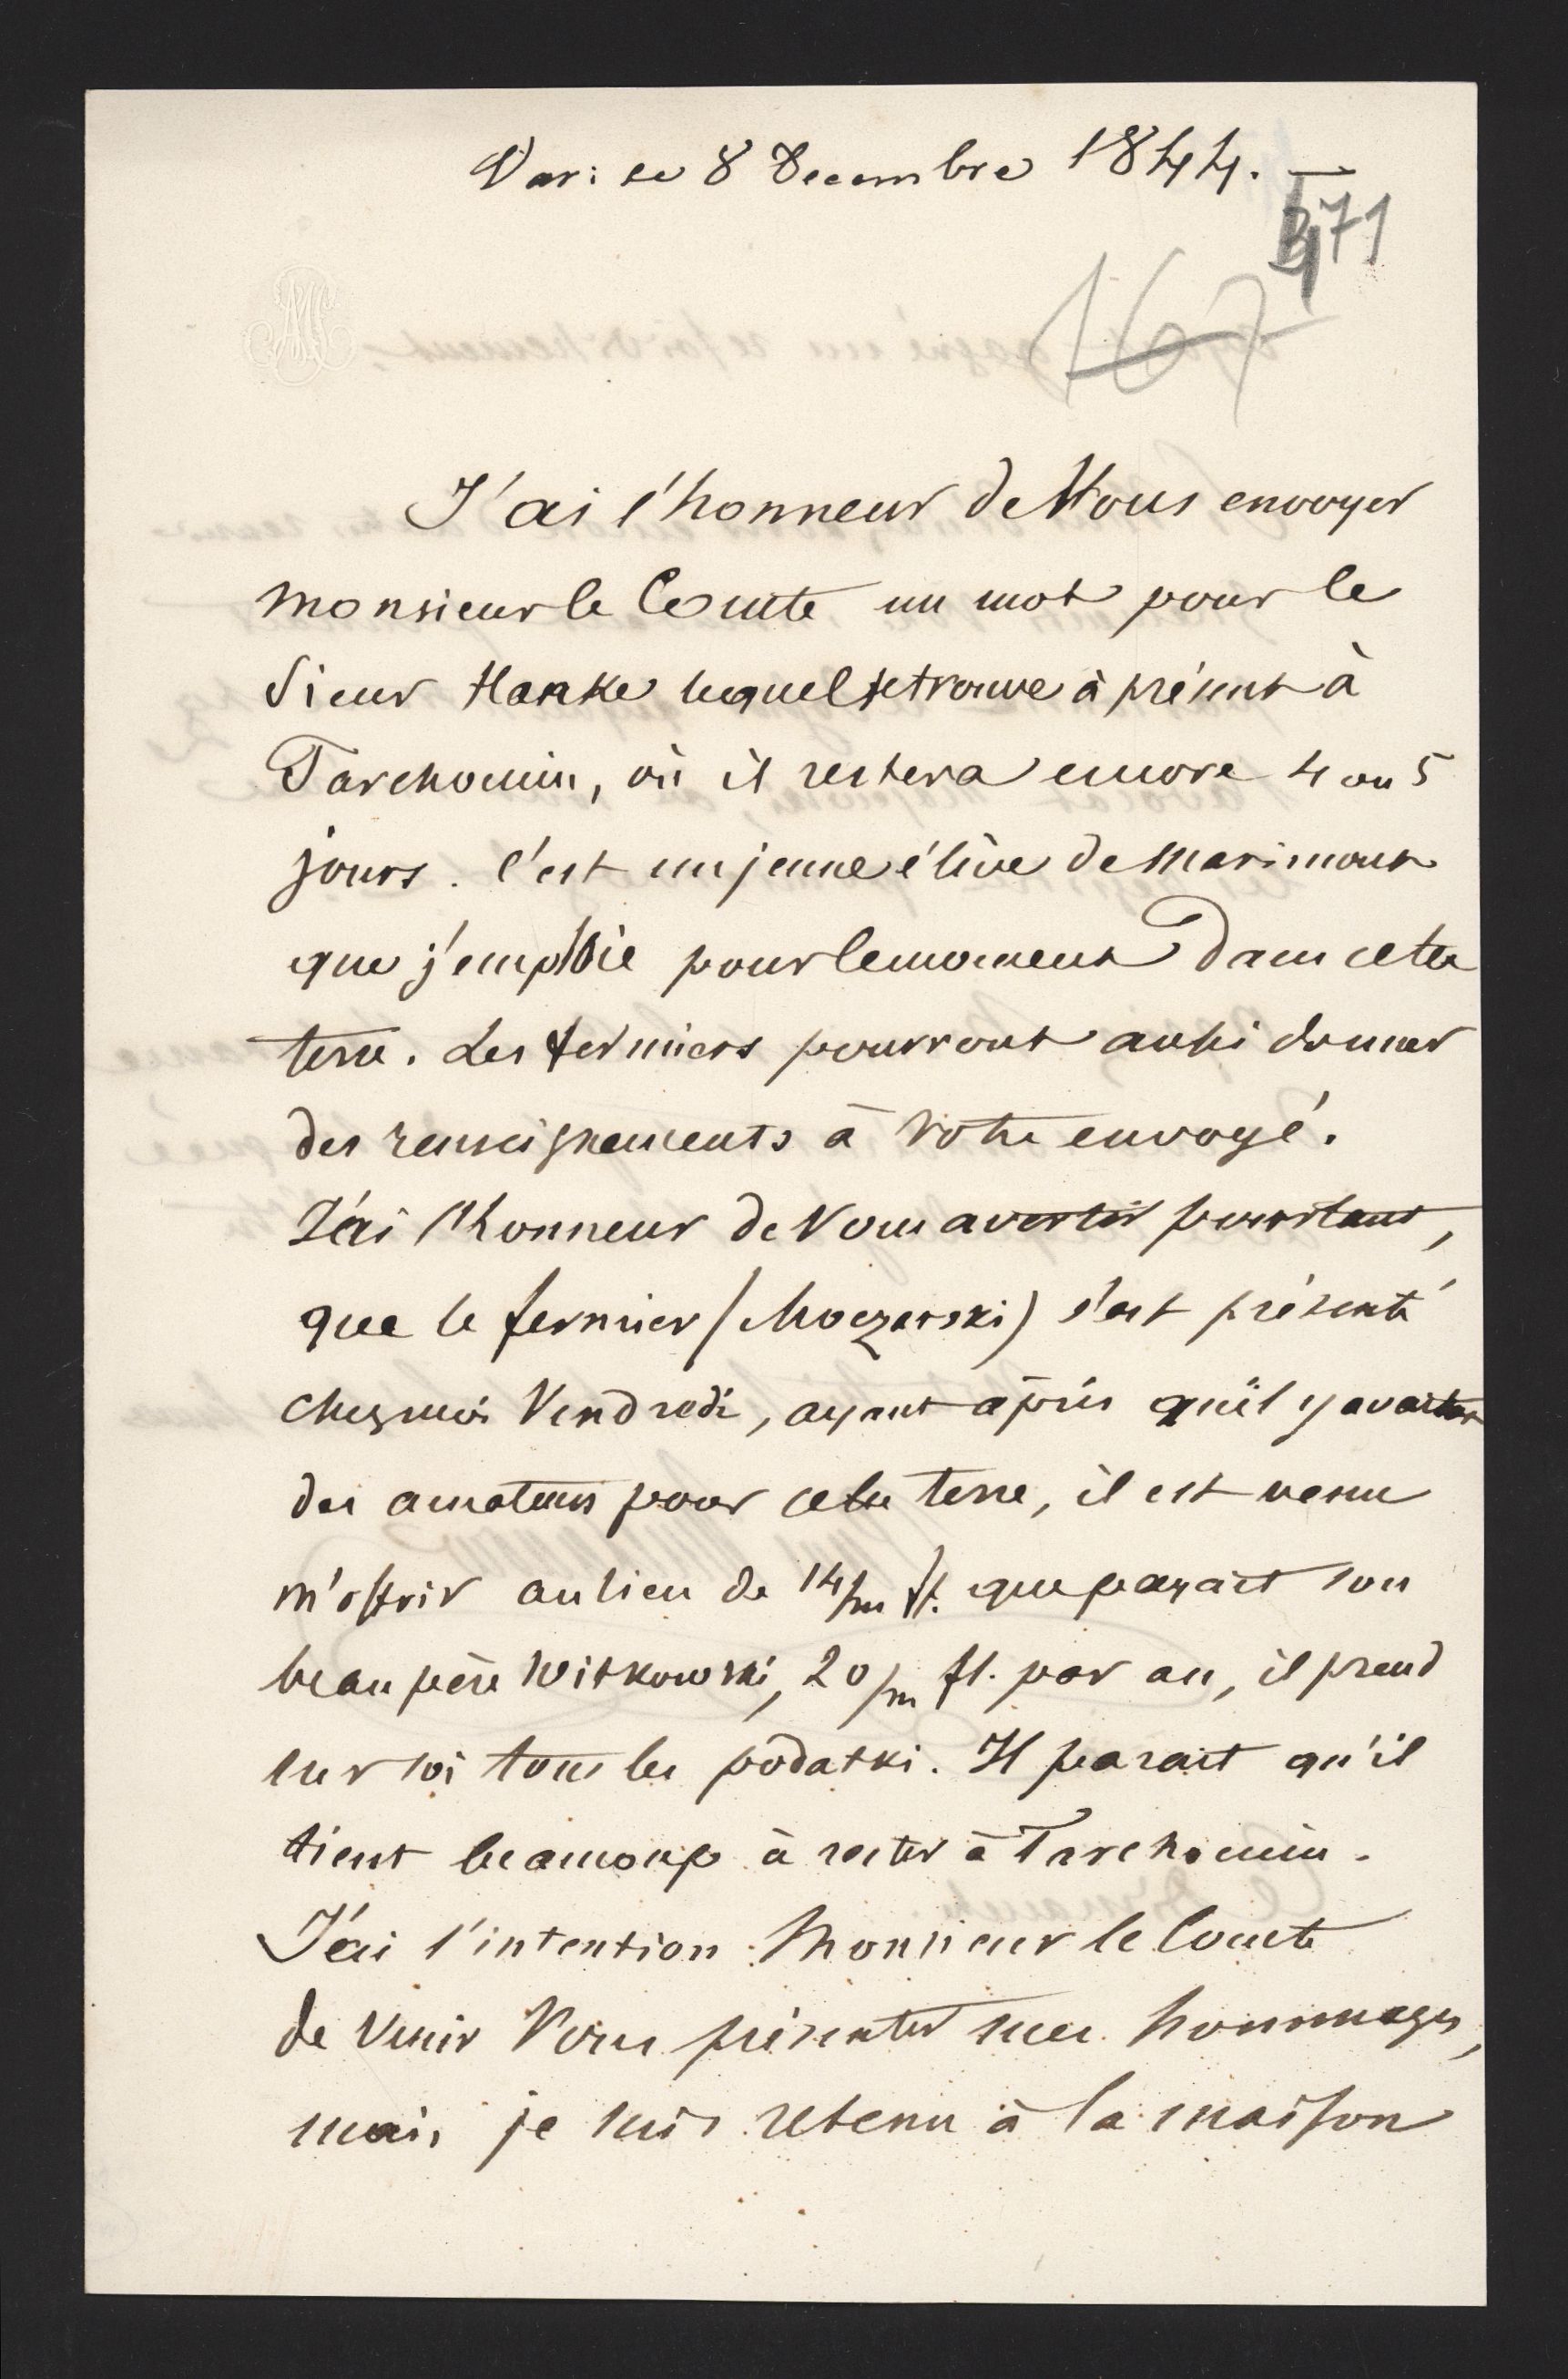 Var: le 8 Decembre 1844.
371
167
J'ai l'honneur de Vous envoyer
Monsieur le Comte un mot pour le
Sieur Hanke lequel se trouve à présent à
Tarchomin, où il restera encore 4 ou 5
jours. C'est un jeune élève de Marimont
que j'emploie pour le moment dans cette
terre. Les fermiers pourront aussi donner
des renseignements à Votre envoyé.
J'ai l'honneur de Vous avertir pourtant,
que le fermier (Moczarski) s'est présenté
chez moi Vendredi, ayant apris qu'il y avait
des amateurs pour cette terre, il est venu
m'offrir au lieu de 14/m fl. que payait son
beau père Witkowski, 20/m fl. par an, il prend
sur soi tous les podatki. Il parait qu'il
tient beaucoup à rester à Tarchomin.
J'ai l'intention Monsieur le Comte
de venir Vous présenter mes hommages,
mais je suis retenu à la maison